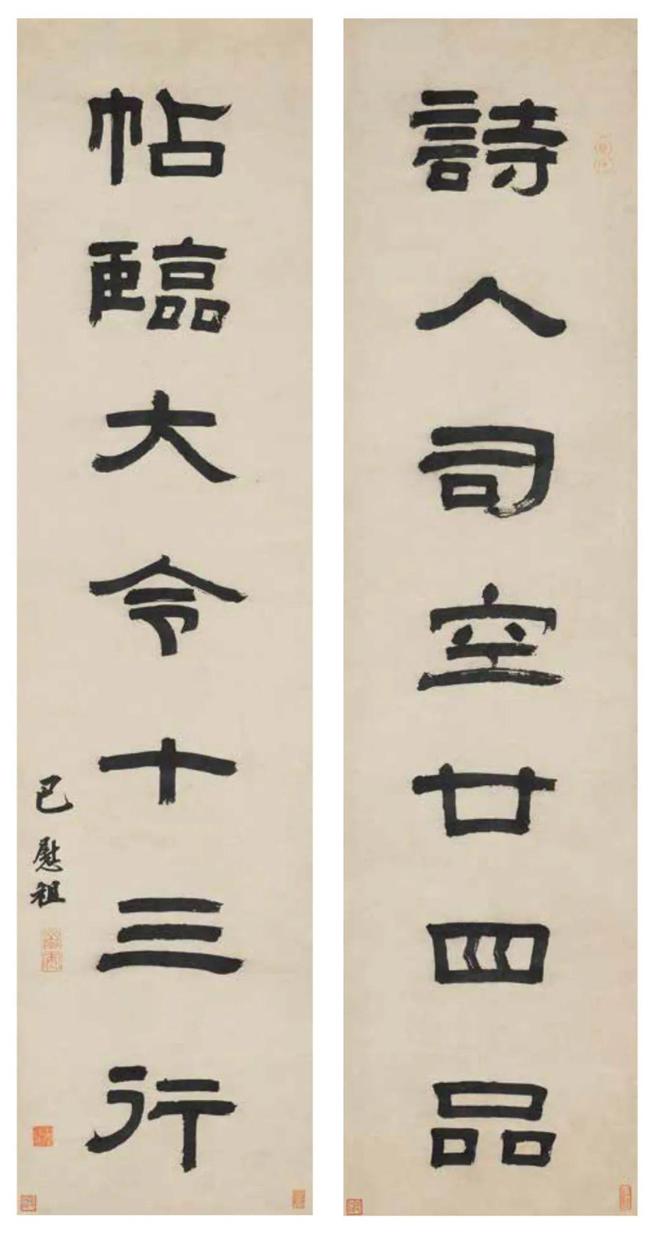 詩入司空廿四品
帖臨大令十三行
巴慰祖